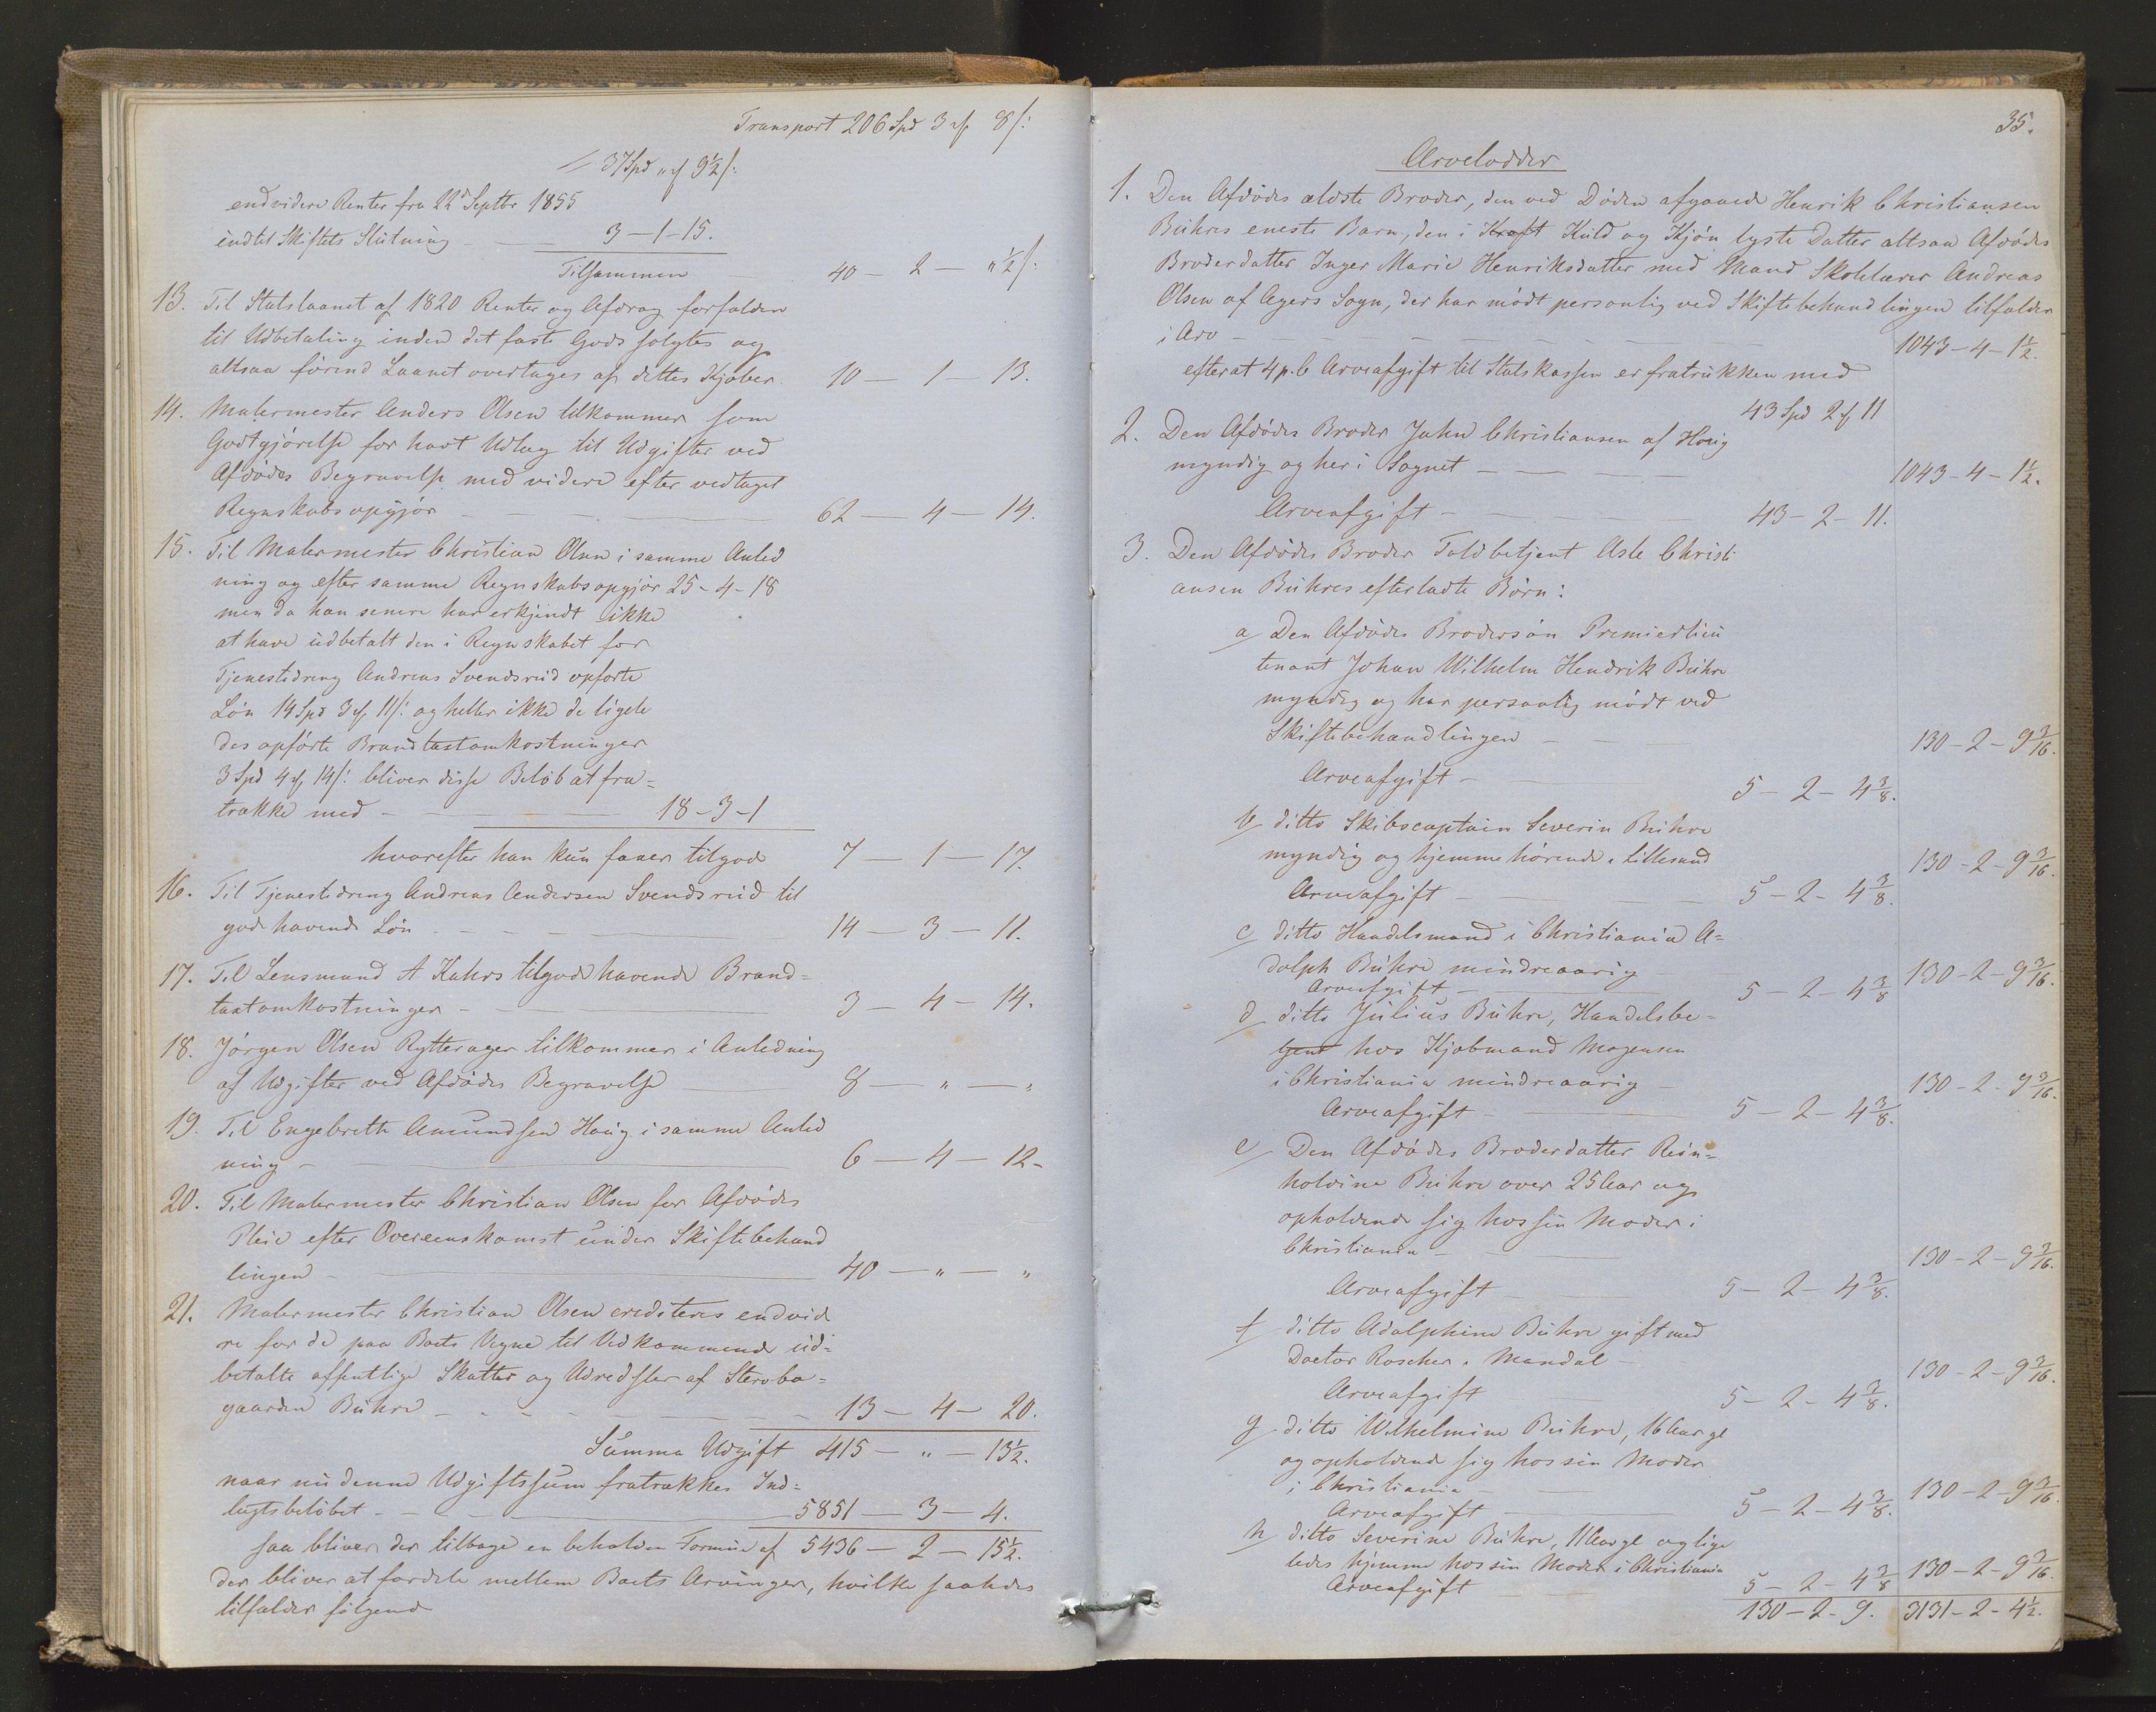 Transport 206 Spd 3 ₰ 8 /:
37 Spd „ ₰ 9½ /:
endvidere Renter fra 22d Septbr 1855
indtil Skiftets Slutning — 3-1-15.
Tilsammen 40 — 2 — „½ /:
13. Til Statslaanet af 1820 Renter og Afdrag forfalden
til Udbetaling inden det faste Gods solgtes og
altsaa førend Laanet overtages af dettes Kjøber 10 — 1 — 13.
14. Malermester Anders Olsen tilkommer som
Godtgjørelse for havt Udlæg til Udgifter ved
Afdødes Begravelse med videre efter vedtaget
Regnskabsopgjør — 62 — 4 — 14.
15. Til Malermester Christian Olsen i samme Anled
ning og efter samme Regnskabsopgjør 25-4-18
men da han senere har erkjendt ikke
at have udbetalt den i Regnskabet for
Tjenestedreng Andreas Svendsrud opførte
Løn 14 Spd 3 ₰ 11 /: og heller ikke de ligele
des opførte Brandtaxtomkostninger
3 Spd 4 ₰ 14 /: bliver disse Beløb at fra-
trække med — 18-3-1
hvorefter han kun faaer tilgode 7 — 1 — 17.
16. Til Tjenestedreng Andreas Andersen Svendsrud til
gode havende Løn — 14 — 3 — 11.
17. Til Lensmand A Kahrs tilgodehavende Brand-
taxtomkostninger — 3 — 4 — 14.
18. Jørgen Olsen Rytterager tilkommer i Anledning
af Udgifter ved Afdødes Begravelse 8 — „ — „
19. Til Engebreth Amundsen Houg i samme Anled
ning — 6 — 4 — 12-
20. Til Malermester Christian Olsen for Afdødes
Pleie efter Overeenskomst under Skiftebehand
lingen — 40 — „ — „
21. Malermester Christian Olsen crediteres endvid
re for de paa Boets Vegne til Vedkommende ud-
betalte offentlige Skatter og Udredsler af Stervbo-
gaarden Buhre — 13 — 4 — 20.
Summa Udgift 415 — „ — 13½.
naar nu denne Udgiftssum fratrækkes Ind-
tægtsbeløbet — 5851 — 3 — 4.
saa bliver der tilbage en beholden Formue af 5436 — 2 — 15½.
der bliver at fordele mellem Boets Arvinger, hvilke saaledes
tilfalder følgende
35.
Arvelodder
1. Den Afdødes ældste Broder, den ved Døden afgaaede Henrik Christiansen
Buhres eneste Barn, den i Kraft Kuld og Kjøn lyste Datter altsaa Afdødes
Broderdatter Inger Marie Henriksdatter med Mand Skolelærer Andreas
Olsen af Agers Sogn, der har mødt personlig ved Skiftebehandlingen tilfalder
i Arv — 1043-4-1½.
efterat 4 p. C Arveafgift til Statskassen er fratrukken med
43 Spd 2 ₰ 11
2. Den Afdødes Broder John Christiansen af Houg
myndig og her i Sognet — 1043-4-1½.
Arveafgift — 43-2-11.
3. Den Afdødes Broder Toldbetjent Asle Christi
ansen Buhres efterladte Børn:
a/ Den Afdødes Brodersøn Premierlieu
tenant Johan Wilhelm Hendrik Buhre
myndig og har personlig mødt ved
Skiftebehandlingen — 130-2-9 3/16.
Arveafgift — 5-2-4 3/8.
b/ ditto Skibscaptain Severin Buhre
myndig og hjemmehørende i Lillesand 130-2-9 3/16.
Arveafgift — 5-2-4 3/8.
c/ ditto Handelsmand i Christiania A-
dolph Buhre mindreaarig 130-2-9 3/16.
Arveafgift — 5-2-4 3/8
d/ ditto Julius Buhre, Handelsbe-
tjent hos Kjøbmand Mogensen
i Christiania mindreaarig — 130-2-9 3/16.
Arveafgift — 5-2-4 3/8.
e/ Den Afdødes Broderdatter Rein-
holdine Buhre over 25 Aar og
opholdende sig hos sin Moder i
Christiania — 130-2-9 3/16.
Arveafgift — 5-2-4 3/8.
f/ ditto Adolphine Buhre gift med
Doctor Roscher i Mandal — 130-2-9 3/16.
Arveafgift 5-2-4 3/8.
g/ ditto Wilhelmine Buhre, 16 Aar gl
og opholdende sig hos sin Moder
i Christiania — 130-2-9 3/16.
Arveafgift — 5-2-4 3/8.
h/ ditto Severine Buhre, 11 Aar gl og lige
ledes hjemme hos sin Moder i Christiania 130-2-9 3/16.
Arveafgift 5-2-4 3/8
130-2-9. 3131-2-4½.